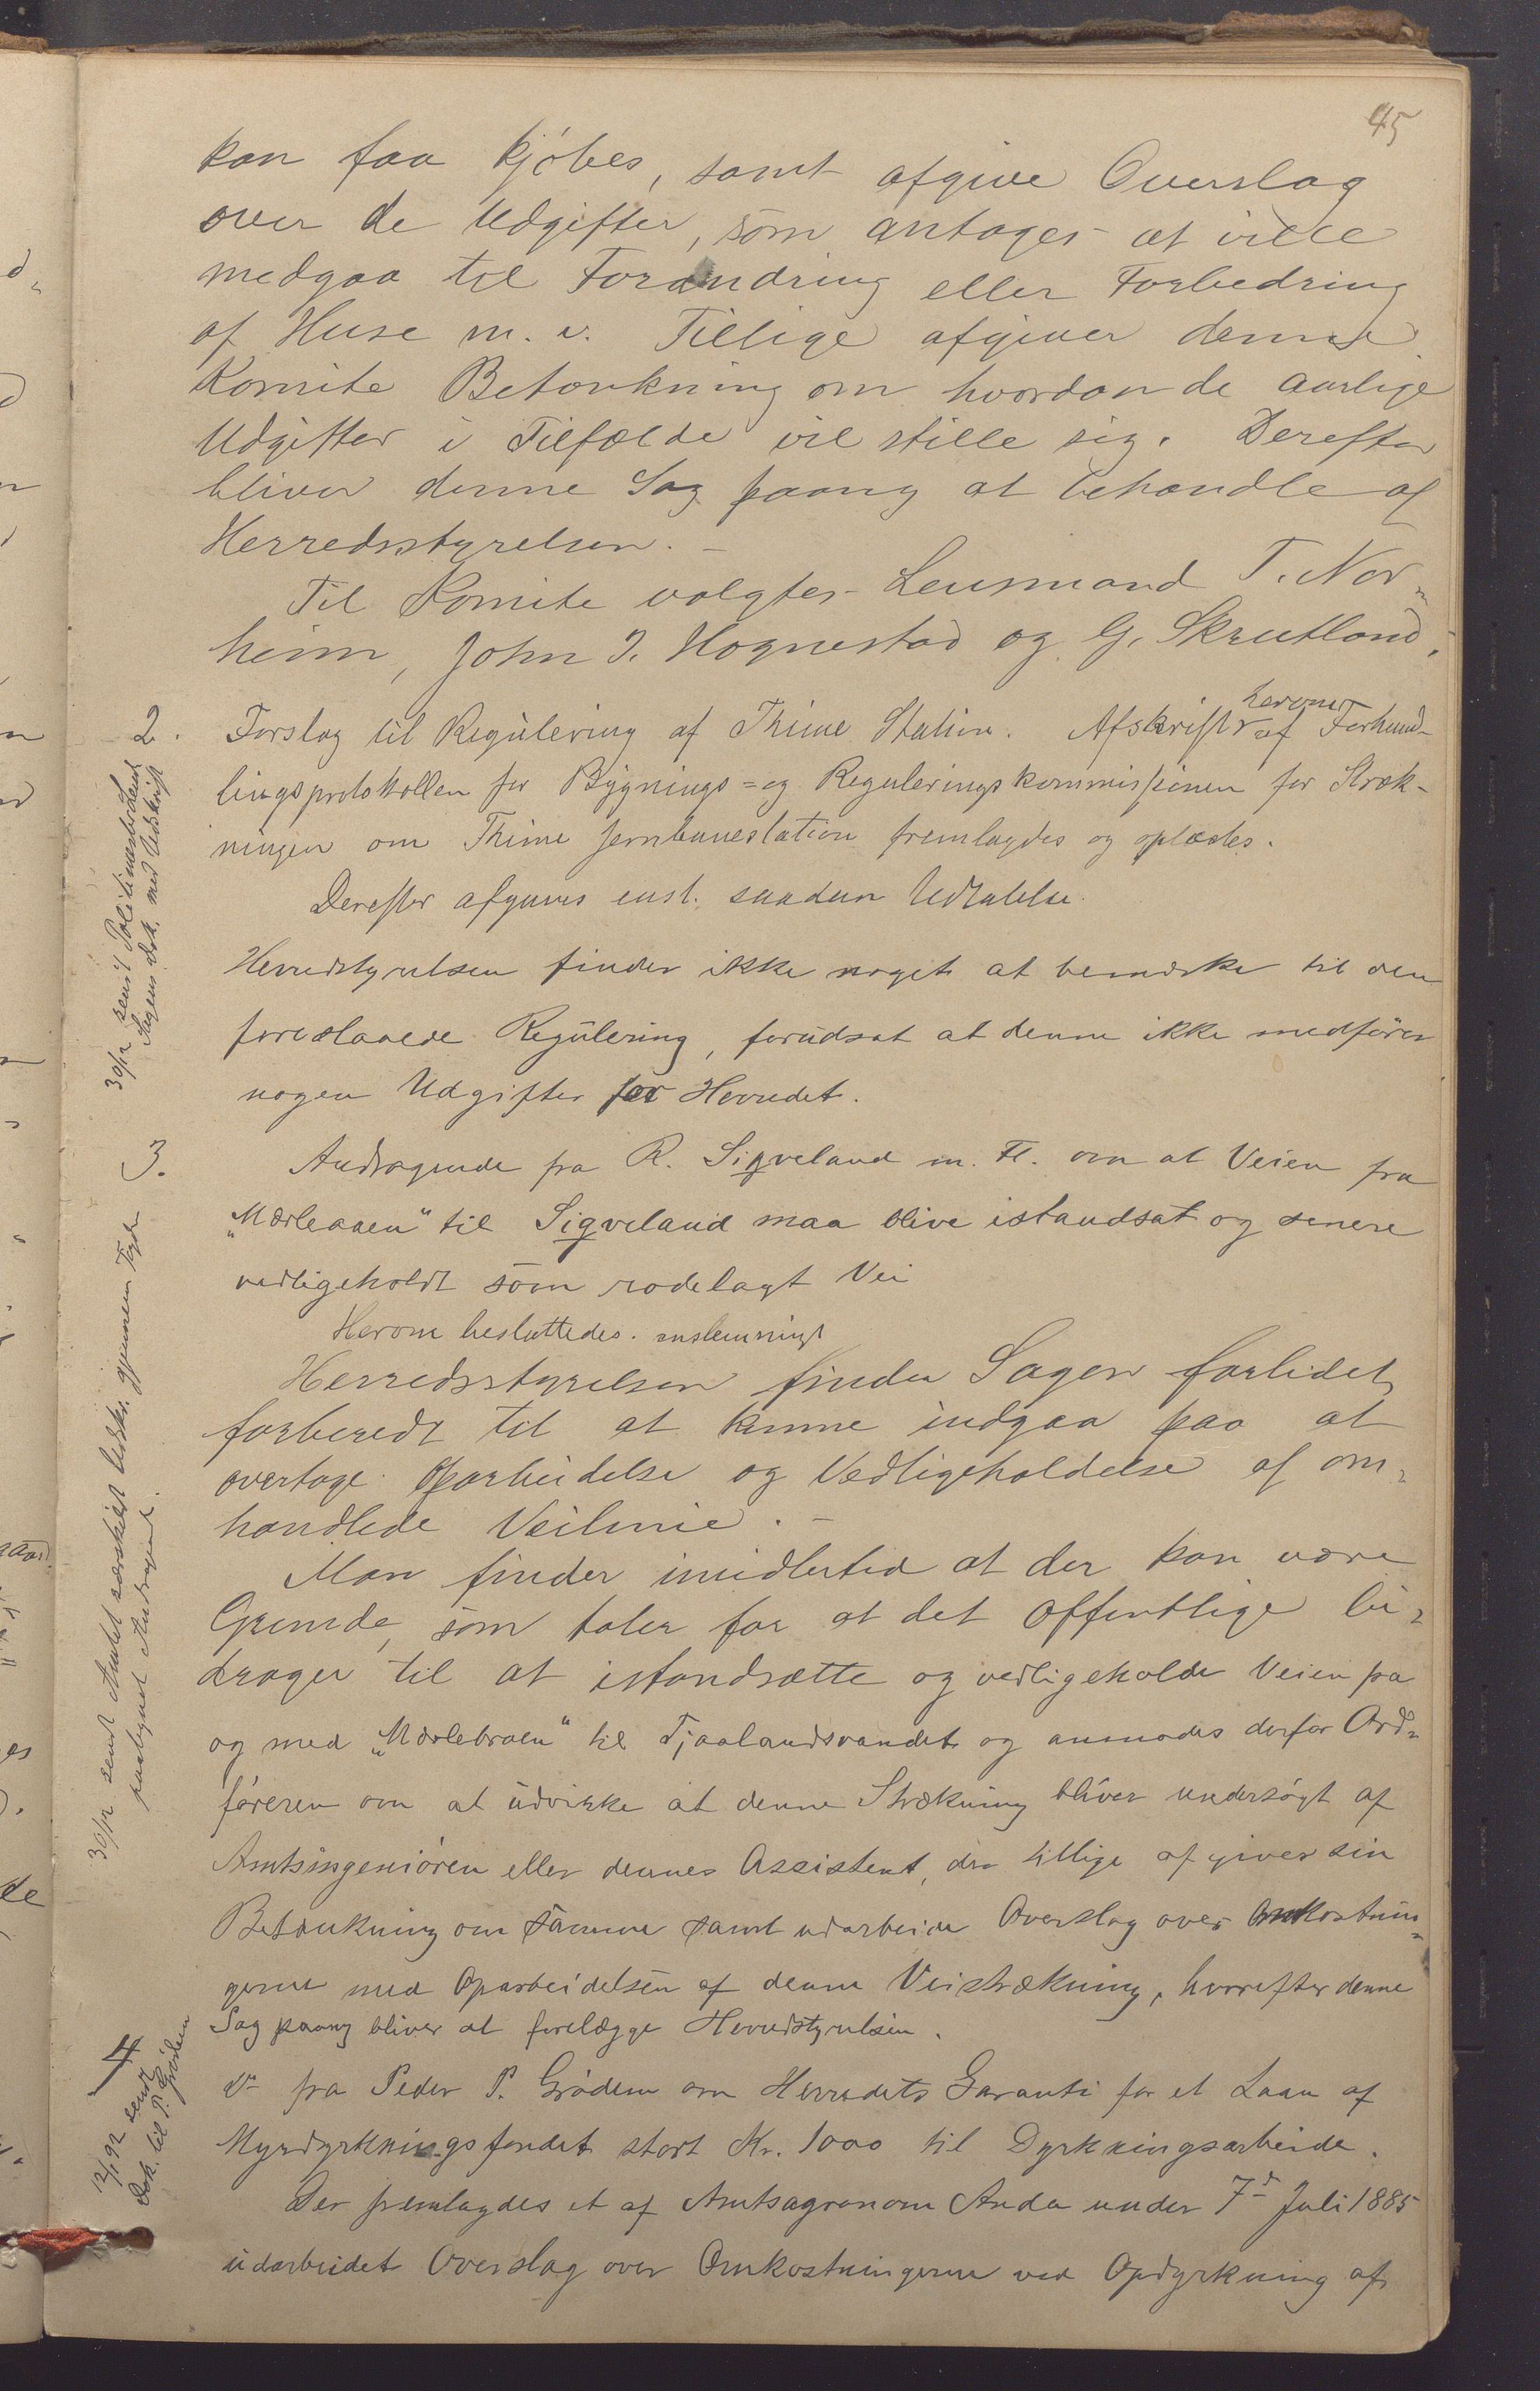 45
kan faa kjöbes, samt afgive Overslag
over de Udgifter, som antages at ville
medgaa til Forandring eller Forbedring
af Huse m. v. Tillige afgiver denne
Komite Betænkning om hvordan de aarlige
Udgifter i Tilfælde vil stille sig. Derefter
bliver denne Sag paany at behandle af
Herredsstyrelsen. –
Til Komite valgtes Lensmand T. Nor-
heim, John J. Hognestad og G. Skrutland.
2. Forslag til Regulering af Thime Station. Afskrift herover af Forhand-
lingsprotokollen for Bygnings- og Reguleringskommissionen for Stræk-
ningen om Thime Jernbanestation fremlagdes og oplæstes.
Derefter afgaves enst. saadan Udtalelse.
Herredstyrelsen finder ikke noget at bemærke til den
foreslaaede Regulering, forudsat at denne ikke medförer
nogen Udgifter for Herredet.
30/12 sendt Politimesteren
Sagens Dok. med Udskrift
3. Andragende fra R. Sigveland m. Fl. om at Veien fra
„Mærleaaen" til Sigveland maa blive istandsat og senere
vedligeholdt som rodelagt Vei
Herom besluttedes enstemmigt
Herredsstyrelsen finder Sagen forlidet
forberedt til at kunne indgaa paa at
overtage Oparbeidelse og Vedligeholdelse af om-
handlede Veilinie. –
Man finder imidlertid at der kan være
Grunde, som taler for at det offentlige bi-
drager til at istandsætte og vedligeholde Veien fra
og med „Mærlebroen" til Tjaalandsvandet og anmodes derfor Ord-
föreren om at udvirke at denne Strækning bliver undersögt af
Amtsingeniören eller dennes Assistent, der tillige afgiver sin
Betænkning om samme samt udarbeide Overslag over Omkostnin-
gerne med Oparbeidelsen af denne Veistrækning, hvorefter denne
Sag paany bliver at forelægge Herredstyrelsen.
30/12 sendt Amtet særskilt Udskr. gjennem Fogden
paategnet Andragende.
4 D° fra Peder P. Grödem om Herredets Garanti for et Laan af
Myrdyrkningsfondet stort Kr. 1000 til Dyrkningsarbeide.
Der fremlagdes et af Amtsagronom Anda under 7d Juli 1885
udarbeidet Overslag over Omkostningerne ved Opdyrkning af
12/1 92 sendt
Dok. til P. Grödem